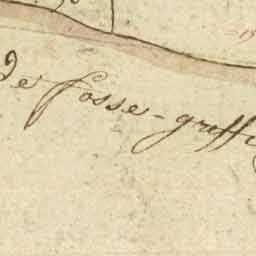 de fosse-greffi